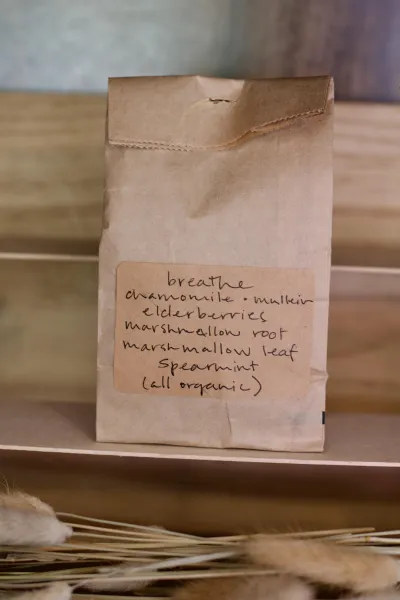 breathe
chamomile • mullein
elderberries
marshmallow root
marshmallow leaf
spearmint
(all organic)